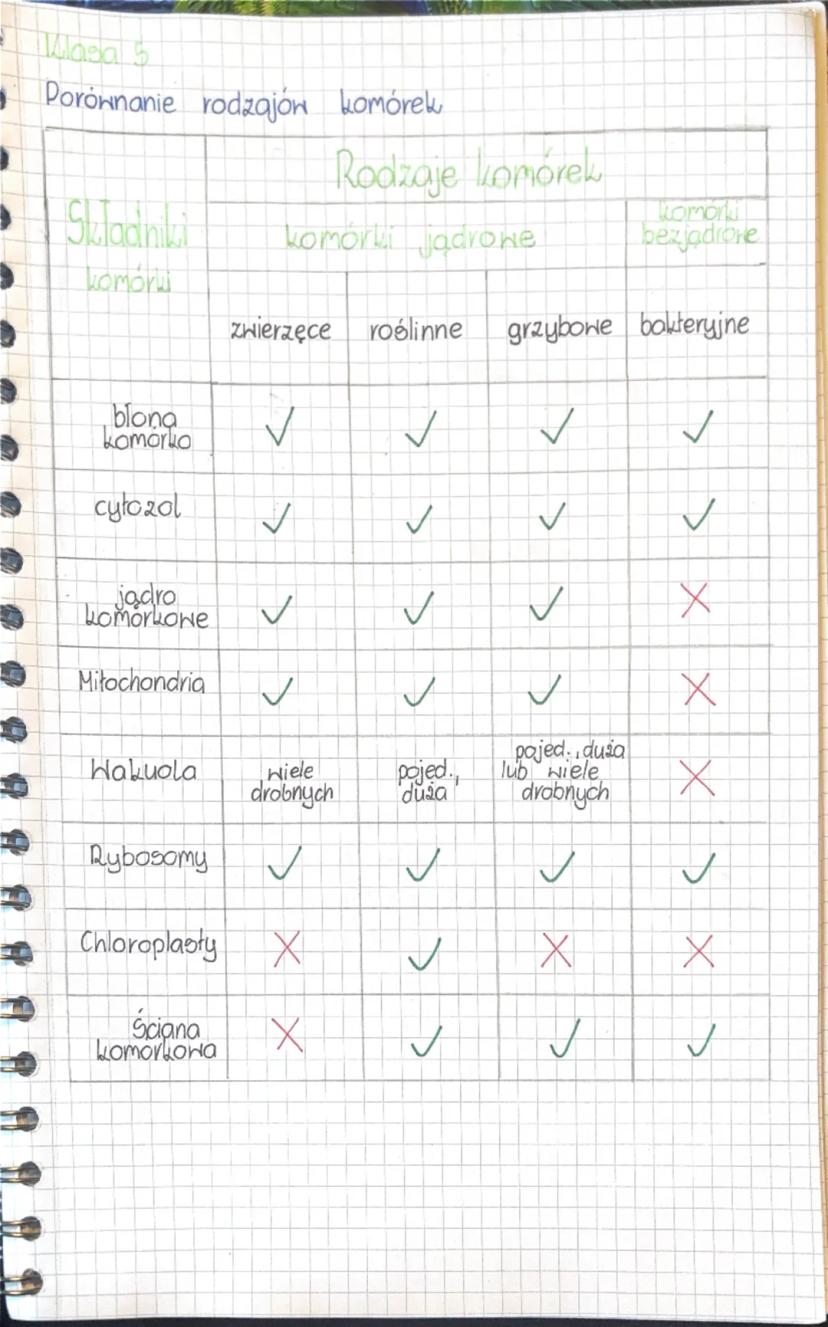 Klasa 5
Porównanie rodzajów komórek
Rodzaje komórek
Składniki
komórki
komórki jądrowe
komórki
bezjądrowe
zwierzęce roślinne grzybowe bakteryjne
błona
komórko
✓ ✓ ✓ ✓
cytozol ✓ ✓ ✓ ✓
jądro
komórkowe
✓ ✓ ✓ ✗
Mitochondria ✓ ✓ ✓ ✗
Wakuola
wiele
drobnych
pojed.,
duża
pojed., duża
lub wiele
drobnych
✗
Rybosomy ✓ ✓ ✓ ✓
Chloroplasty ✗ ✓ ✗ ✗
Ściana
komorkowa
✗ ✓ ✓ ✓